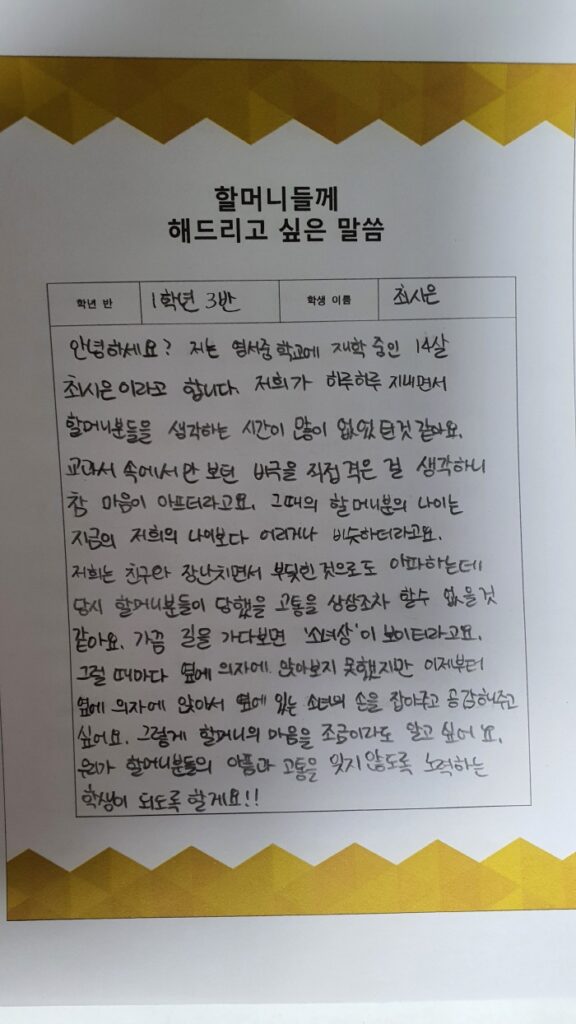 할머니들께
해드리고 싶은 말씀
학년 반 1학년 3반 학생 이름 최시은
안녕하세요? 저는 영서중학교에 재학 중인 14살
최시은이라고 합니다. 저희가 하루하루 지내면서
할머니분들을 생각하는 시간이 많이 없었던것 같아요.
교과서 속에서만 보던 비극을 직접 격은 걸 생각하니
참 마음이 아프더라고요. 그때의 할머니분의 나이는
지금의 저희의 나이보다 어리거나 비슷하더라고요.
저희는 친구와 장난치면서 부딪힌 것으로도 아파하는데
당시 할머니분들이 당했을 고통을 상상조차 할수 없을것
같아요. 가끔 길을 가다보면 '소녀상'이 보이더라고요.
그럴 때마다 옆에 의자에 앉아보지 못했지만 이제부터
옆에 의자에 앉아서 옆에 있는 소녀의 손을 잡아주고 공감해주고
싶어요. 그렇게 할머니의 마음을 조금이라도 알고 싶어요.
우리가 할머니분들의 아픔과 고통을 잊지 않도록 노력하는
학생이 되도록 할게요!!